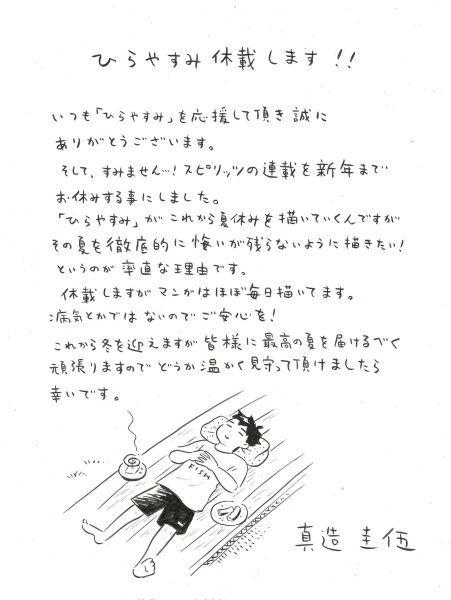 ひらやすみ 休載します!!
いつも「ひらやすみ」を応援して頂き誠に
ありがとうございます。
そして、すみません…!スピリッツの連載を新年まで
お休みする事にしました。
「ひらやすみ」がこれから夏休みを描いていくんですが
その夏を徹底的に悔いが残らないように描きたい!
というのが率直な理由です。
休載しますがマンガはほぼ毎日描いてます。
病気とかではないのでご安心を!
これから冬を迎えますが皆様に最高の夏を届けるべく
頑張りますのでどうか温かく見守って頂けましたら
幸いです。
FISH
真造圭伍